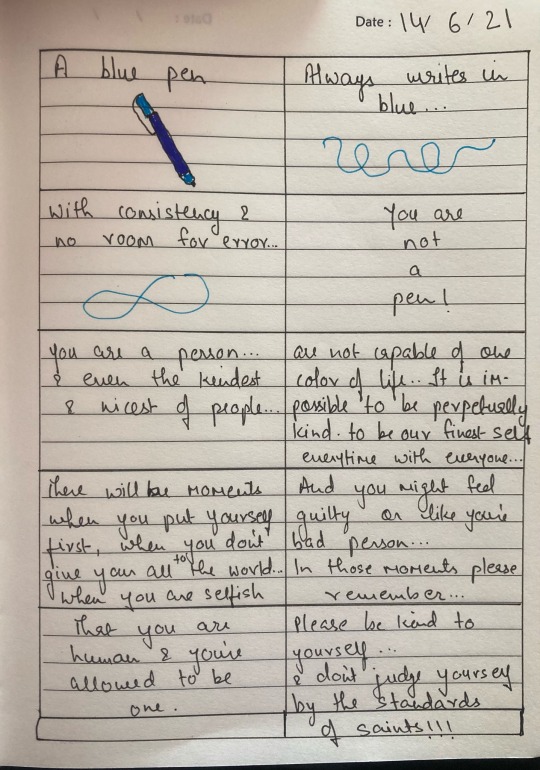 Date : 14/ 6/ 21
A blue pen
Always writes in
blue...
with consistency &
no room for error...
You are
not
a
pen!
you are a person...
& even the kindest
& nicest of people...
are not capable of one
color of life.. It is im-
possible to be perpetually
kind. to be our finest self
everytime with everyone...
There will be MOMENTS
when you put yourself
first, when you don't
give your all to the world...
when you are selfish
And you might feel
guilty or like you're
bad person...
In those MOMENTS please
remember...
That you are
human & you're
allowed to be
one.
Please be kind to
yourself...
& don't judge yourself
by the standards
of saints!!!